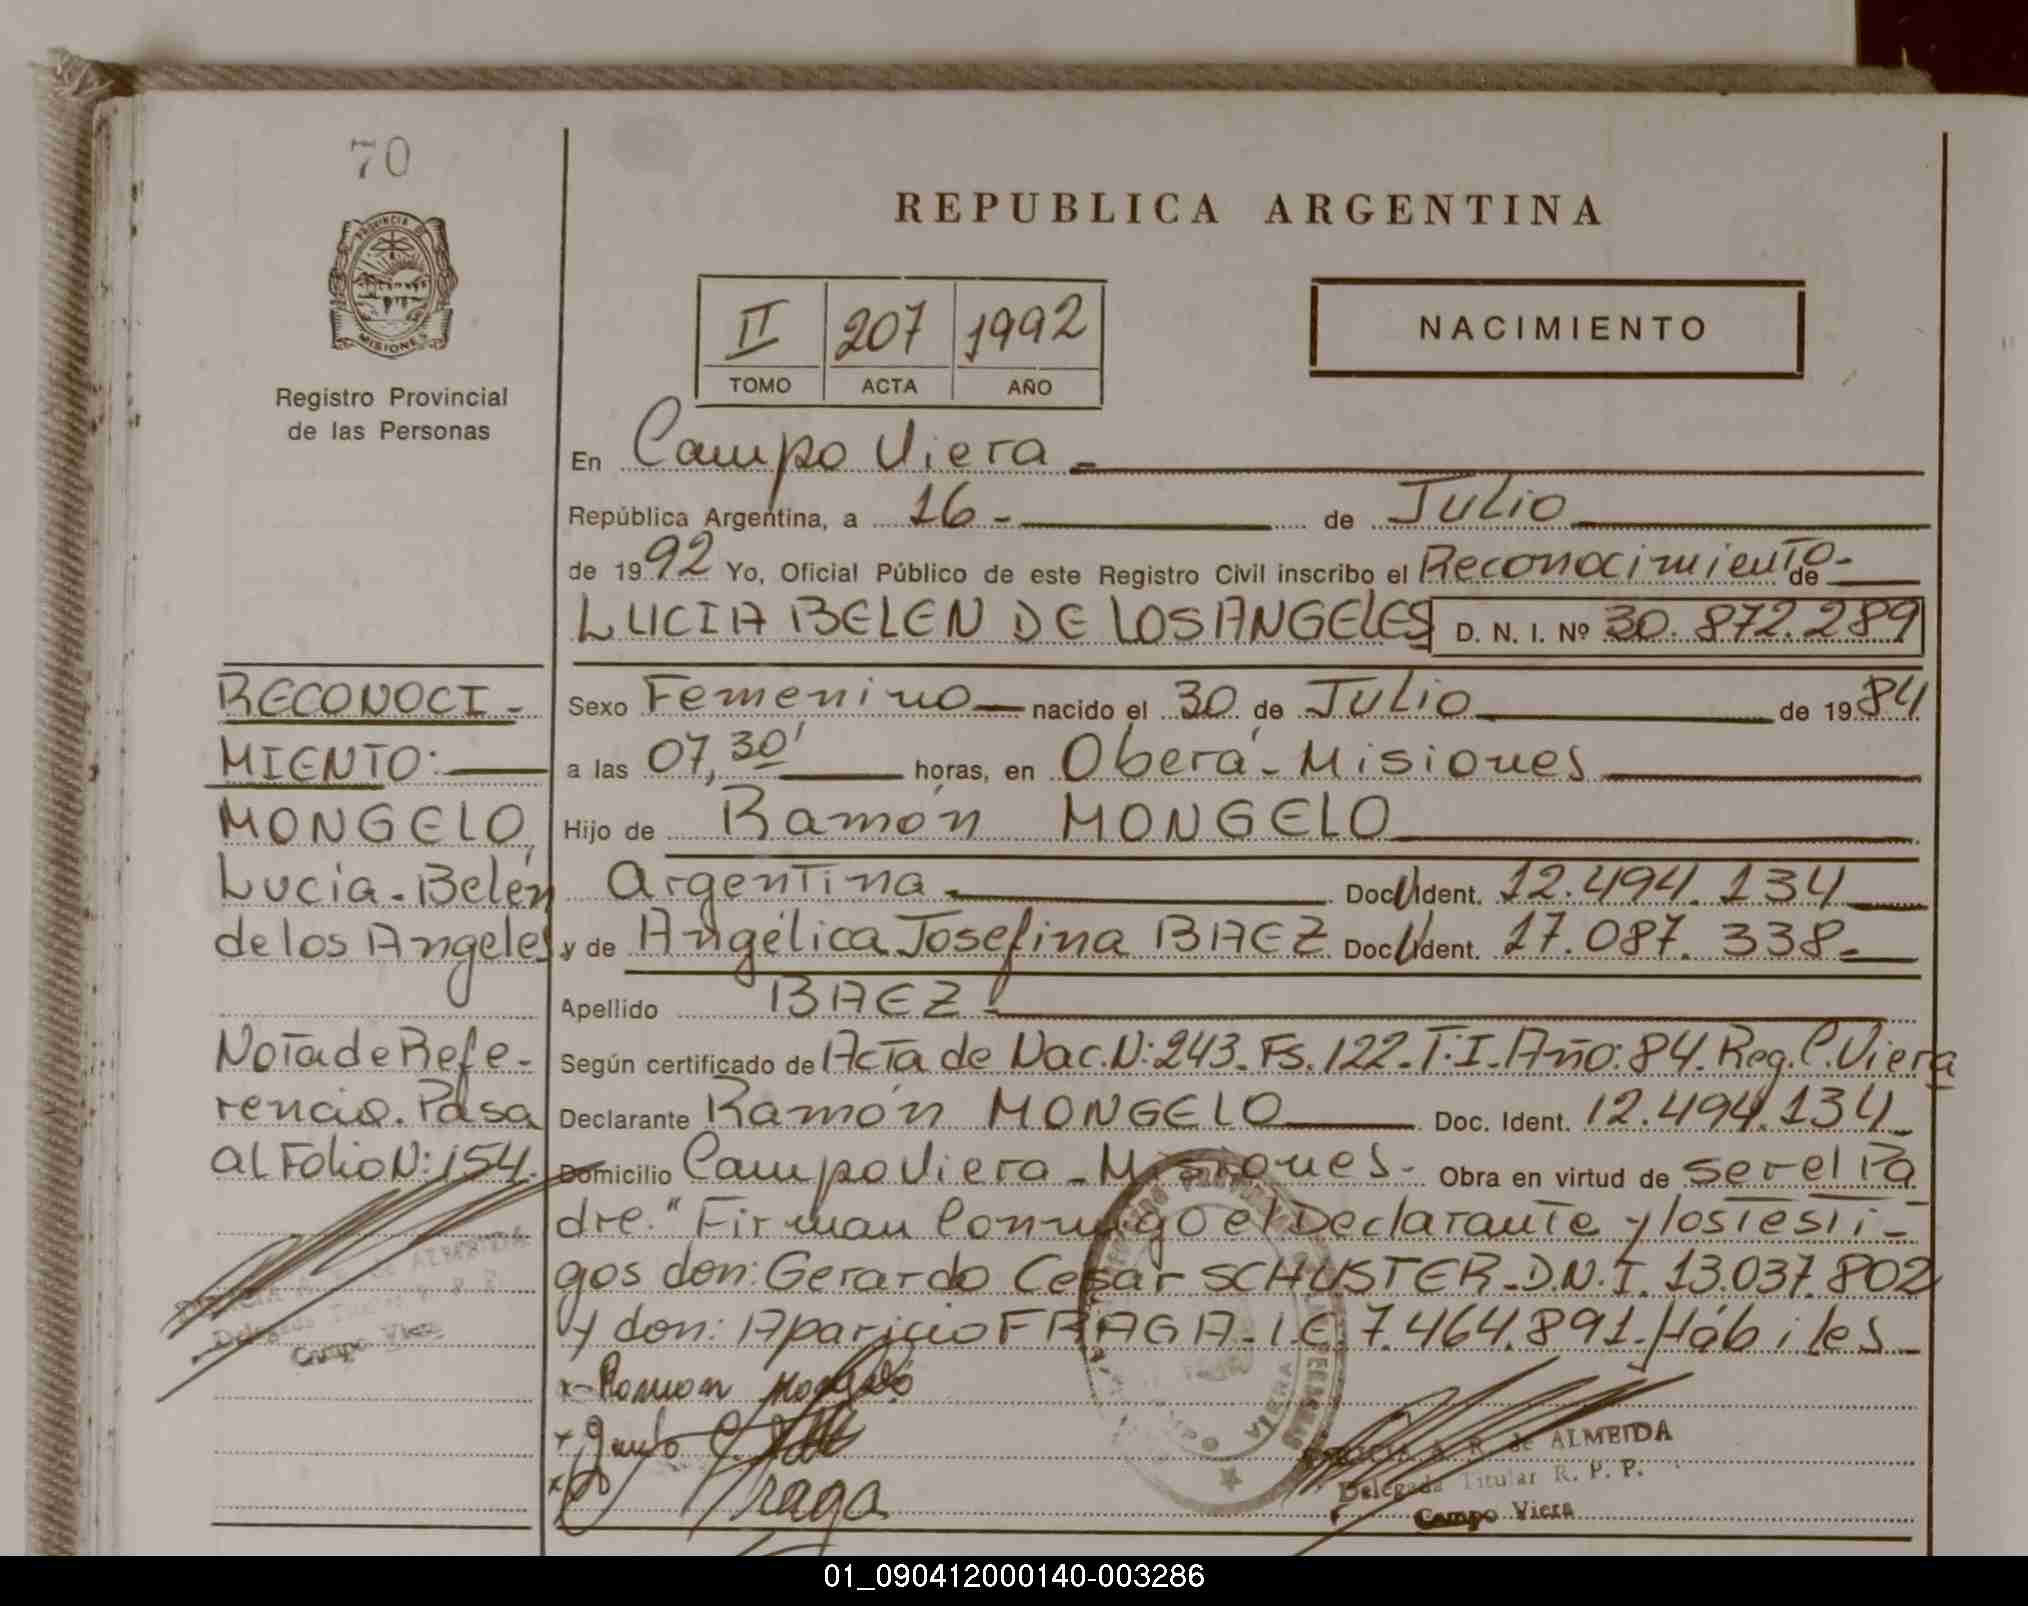 70
PROVINCIA DE
MISIONES
Registro Provincial
de las Personas
REPUBLICA ARGENTINA
II 207 1992
TOMO ACTA AÑO
NACIMIENTO
En Campo Viera -
República Argentina, a 16 - de Julio
de 1992 Yo, Oficial Público de este Registro Civil inscribo el Reconocimiento - de
LUCIA BELEN DE LOS ANGELES D. N. I. Nº 30.872.289
Sexo Femenino nacido el 30 de Julio de 1984
a las 07,30' horas, en Oberá - Misiones
Hijo de Ramón MONGELO
Argentina Doc. Ident. 12.494.134
y de Angélica Josefina BAEZ Doc. Ident. 17.087.338-
Apellido BAEZ
Según certificado de Acta de Nac. N: 243. Fs. 122. T. I. Año: 84. Reg. C. Viera
Declarante Ramón MONGELO Doc. Ident. 12.494.134
Domicilio Campo Viera - Misiones - Obra en virtud de ser el Pa
dre." Firman conmigo el Declarante y los Testi-
gos don: Gerardo Cesar SCHUSTER - D.N.I. 13.037.802
y don: Aparicio FRAGA - L.E. 7.464.891. Hábiles
x- Ramon Mongelo
Fraga
RECONOCI-
MIENTO:
MONGELO,
Lucia - Belén
de los Angeles
Nota de Refe-
rencia. Pasa
al Folio N: 154.
de ALMEIDA
Delegada Titular R. P. P.
Campo Viera
A. R. de ALMEIDA
Delegada Titular R. P. P.
Campo Viera
VIERA
01_090412000140-003286